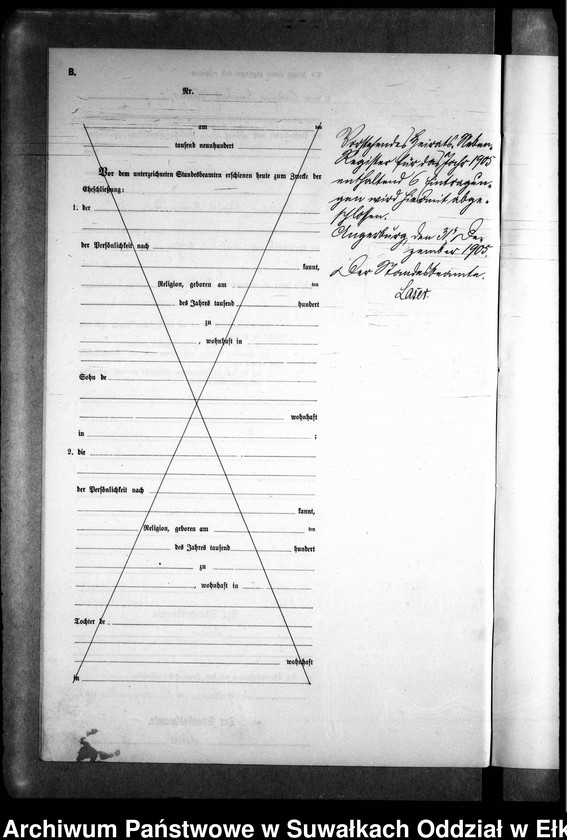 B.
Nr.
am ten
tausend neunhundert
Vor dem unterzeichneten Standesbeamten erschienen heute zum Zwecke der
Eheschließung:
1. der
der Persönlichkeit nach
kannt,
Religion, geboren am ten
des Jahres tausend hundert
zu
, wohnhaft in
Sohn de
wohnhaft
in ;
2. die
der Persönlichkeit nach
kannt,
Religion, geboren am ten
des Jahres tausend hundert
zu
, wohnhaft in
Tochter de
wohnhaft
in
Vorstehendes Heirats-Neben-
Register für das Jahr 1905
enthaltend 6 Eintragun-
gen wird hiermit abge-
schlossen.
Angerburg, den 31t De-
zember 1905.
Der Standesbeamte.
Laser.
Archiwum Państwowe w Suwałkach Oddział w Ełk